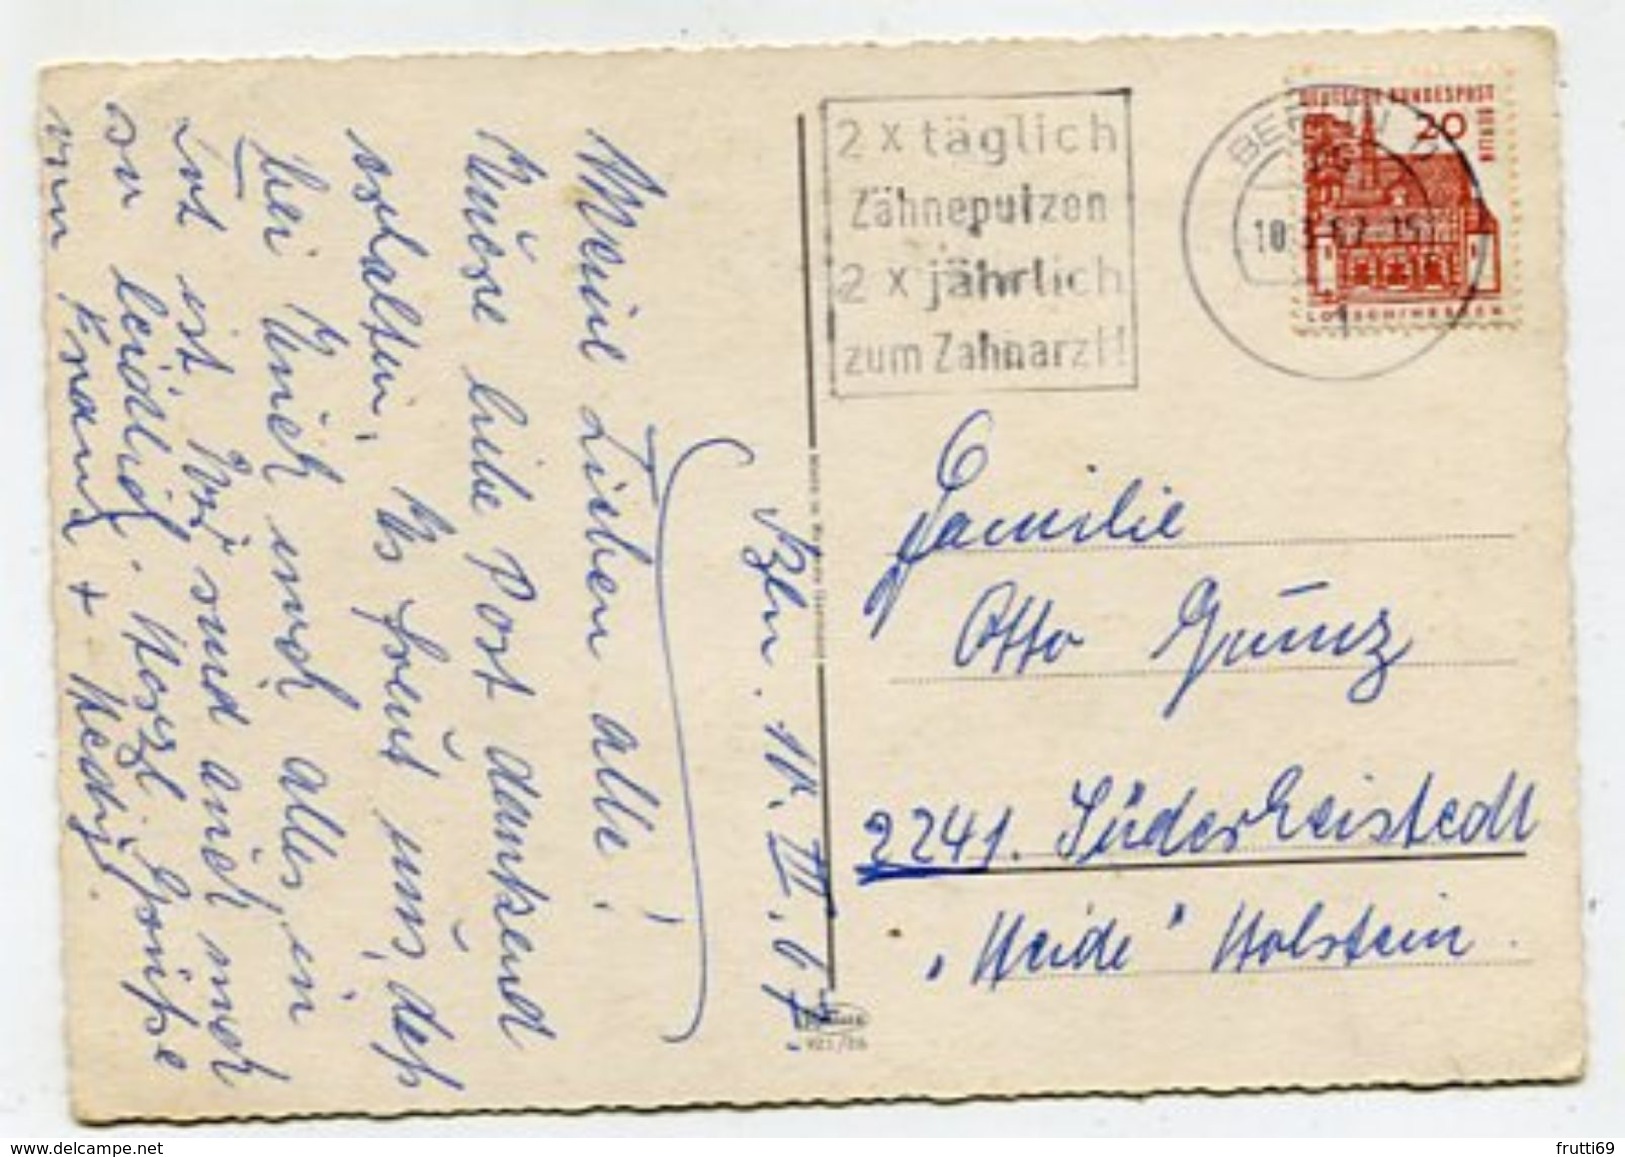 Bln. 10. III. 67
Meine Lieben alle!
Eure liebe Post dankend
erhalten. Es freut uns, daß
bei Euch noch alles in
ist. Wir sind auch noch
so leidlich. Herzl. Grüße
von Franz + Heidi.
2 x täglich
Zähneputzen
2 x jährlich
zum Zahnarzt!
BERLIN
DEUTSCHE BUNDESPOST
BERLIN
20
LORSCH/HESSEN
Familie
Otto Günz
2241. Süderheistedt
"Heide" Holstein.
© www.delcampe.net
frutti69